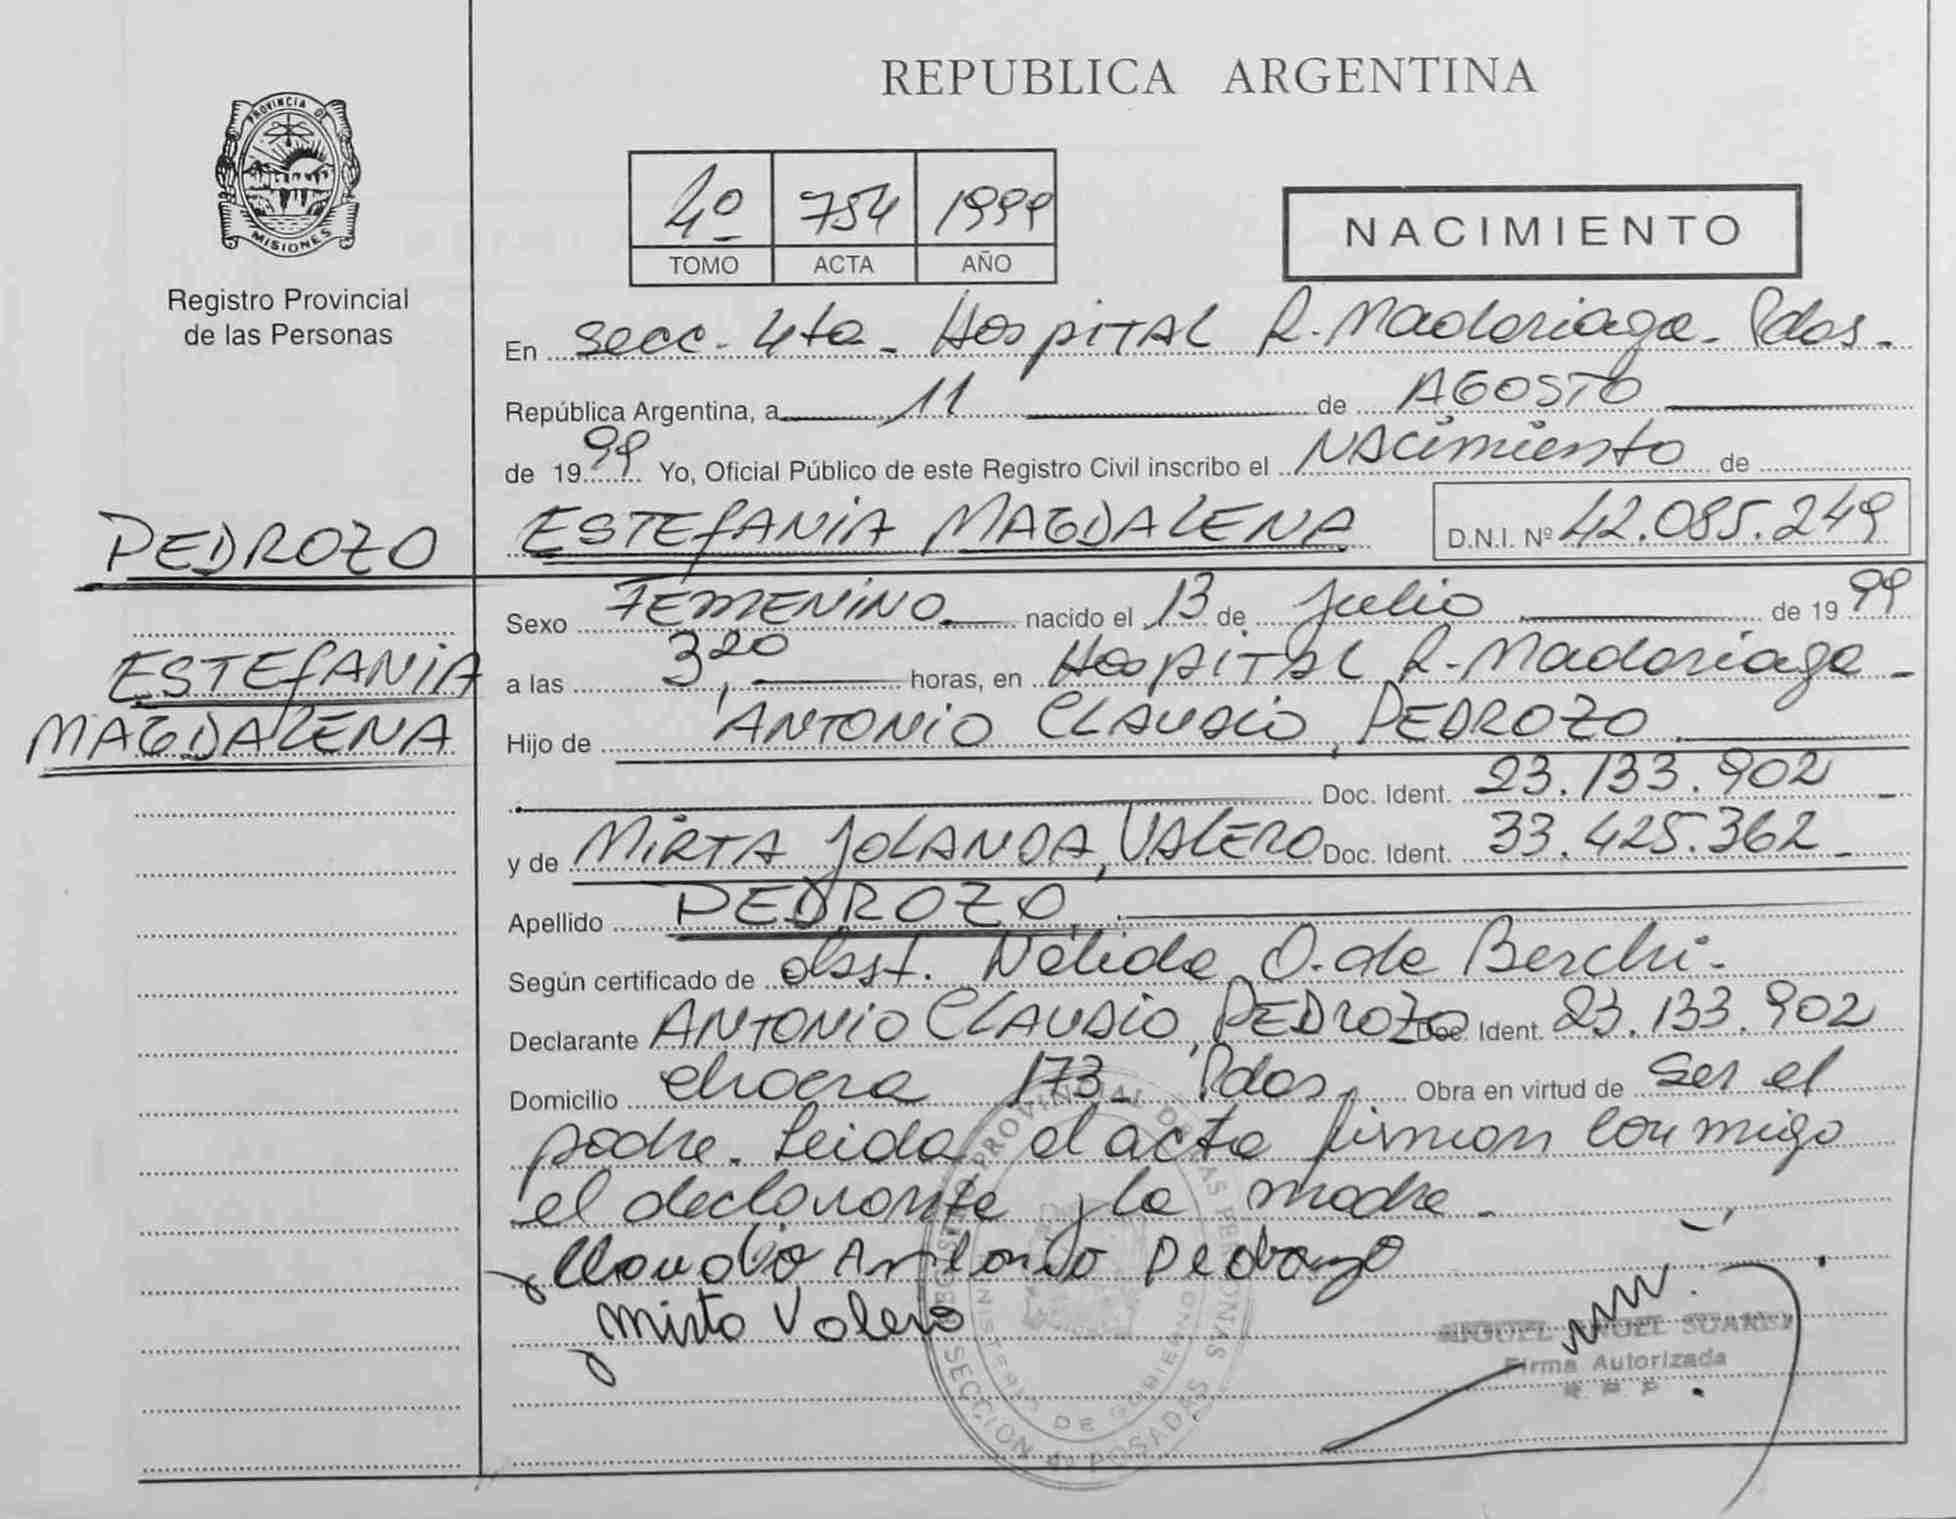 REPUBLICA ARGENTINA
PROVINCIA DE
MISIONES
Registro Provincial
de las Personas
4º 754 1999
TOMO ACTA AÑO
NACIMIENTO
En Secc. 4ta - Hospital R. Madariaga - Pdas.
República Argentina, a 11 de AGOSTO
de 1999 Yo, Oficial Público de este Registro Civil inscribo el NACimiento de
PEDROZO
ESTEfANiA MAGDALENA D.N.I. Nº 42.085.249
Sexo FEMENiNO nacido el 13 de Julio de 1999
ESTEfANiA
MAGDALENA
a las 3,20 horas, en HospiTAL R. Madariaga -
Hijo de ANTONiO CLAUDiO, PEDROZO
Doc. Ident. 23.133.902
y de MiRTA JOLANDA, VALERO Doc. Ident. 33.425.362
Apellido PEDROZO
Según certificado de obst. Nélida O. de Berchi.
Declarante ANTONiO CLAUDiO, PEDROZO Doc. Ident. 23.133.902
Domicilio chacra 173 - Pdas. Obra en virtud de ser el
padre. Leida el acta firman conmigo
el declarante y la madre.
Claudio Antonio Pedrozo
Mirta Valero
MIGUEL ANGEL SUAREZ
Firma Autorizada
REGISTRO PROVINCIAL DE LAS PERSONAS
MINISTERIO DE GOBIERNO
SECCION 4a POSADAS